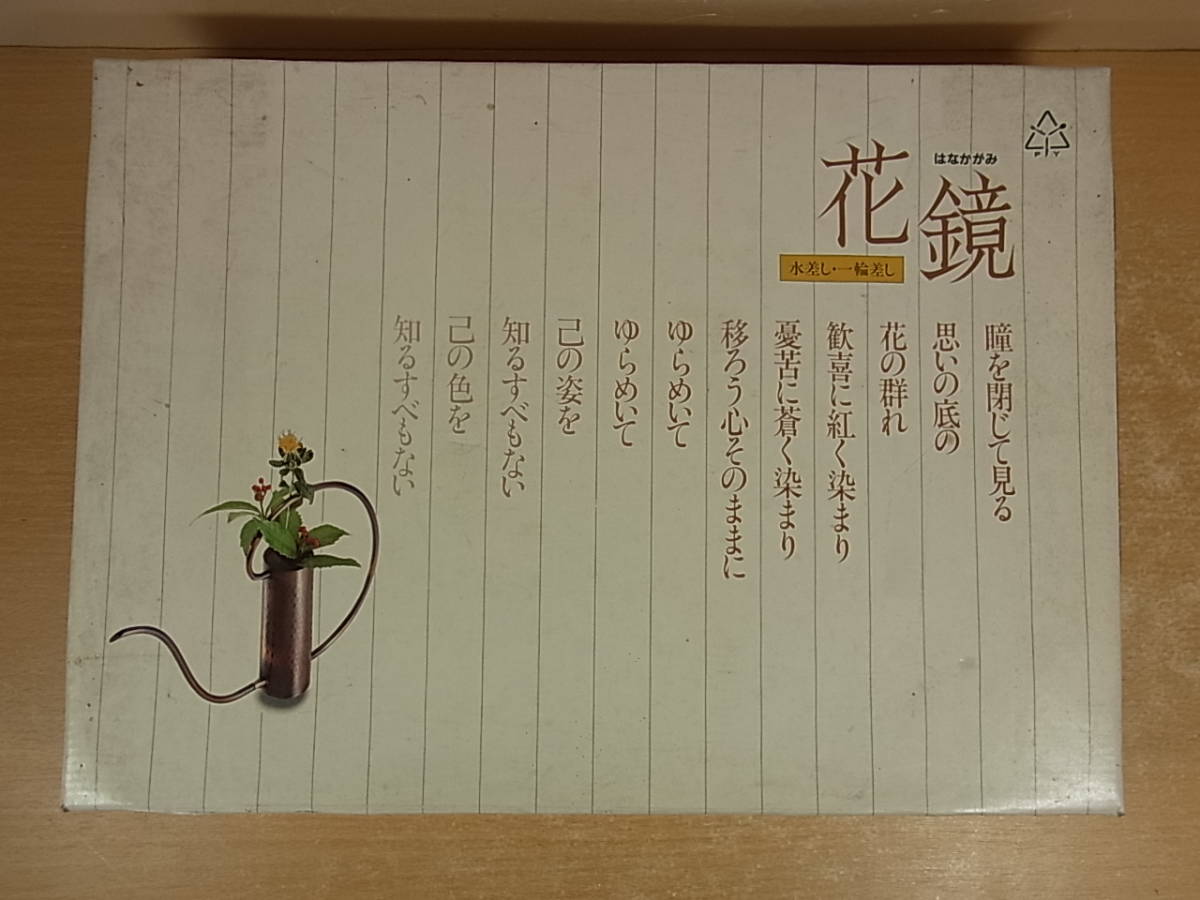 花鏡
はなかがみ
水差し・一輪差し
瞳を閉じて見る
思いの底の
花の群れ
歓喜に紅く染まり
憂苦に蒼く染まり
移ろう心そのままに
ゆらめいて
ゆらめいて
己の姿を
知るすべもない
己の色を
知るすべもない